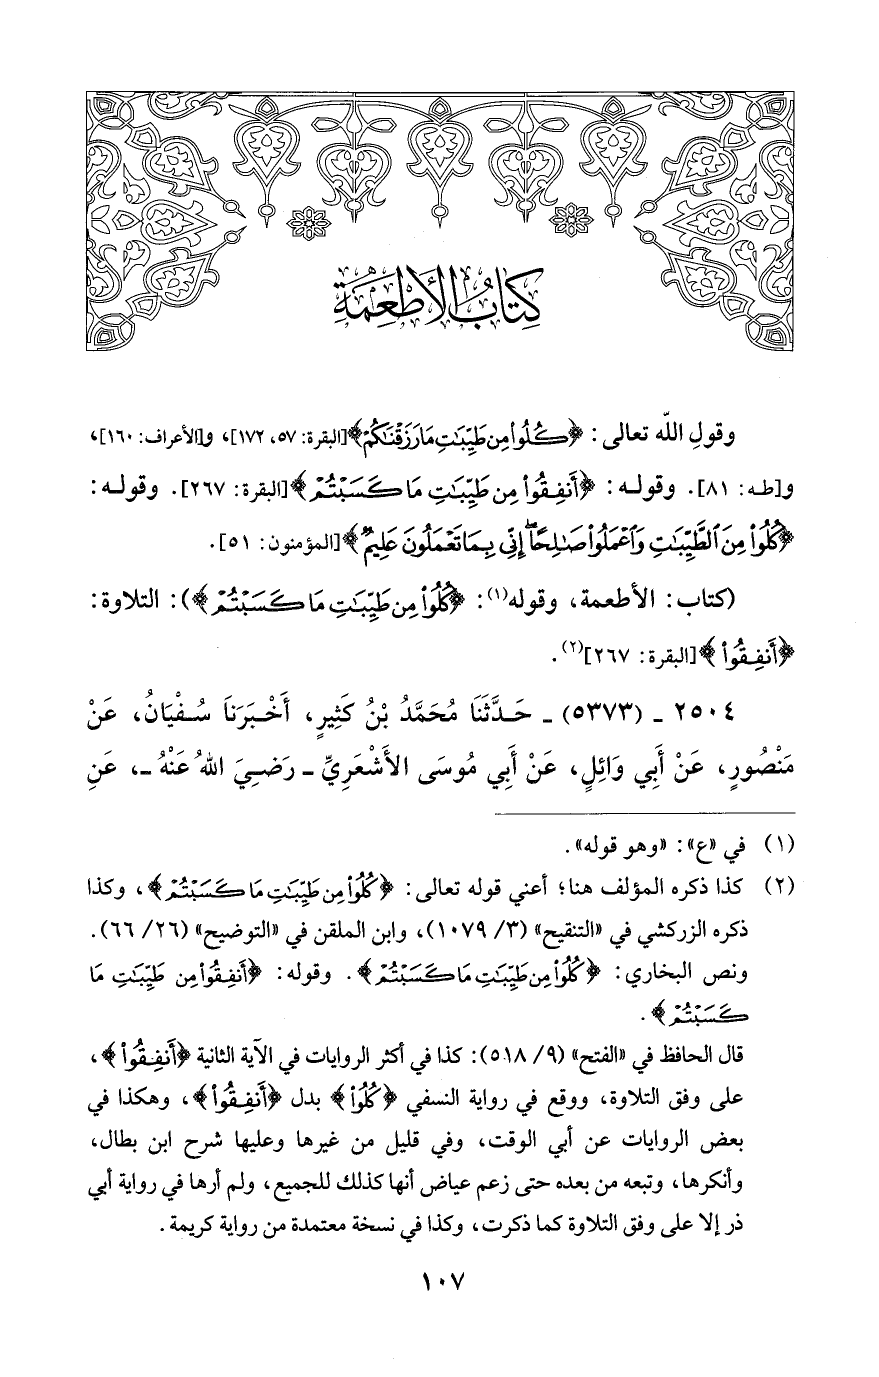 كِتَابُ الأَطْعِمَةِ
وقولِ اللّه تعالى: ﴿كُلُوا۟ مِن طَيِّبَٰتِ مَا رَزَقْنَٰكُمْ﴾[البقرة: ٥٧، ١٧٢]، و[الأعراف: ١٦٠]،
و[طه: ٨١]. وقوله: ﴿أَنفِقُوا۟ مِن طَيِّبَٰتِ مَا كَسَبْتُمْ﴾[البقرة: ٢٦٧]. وقوله:
﴿كُلُوا۟ مِنَ ٱلطَّيِّبَٰتِ وَٱعْمَلُوا۟ صَٰلِحًا ۖ إِنِّى بِمَا تَعْمَلُونَ عَلِيمٌ﴾[المؤمنون: ٥١].
(كتاب: الأطعمة، وقوله(١): ﴿كُلُوا۟ مِن طَيِّبَٰتِ مَا كَسَبْتُمْ﴾): التلاوة:
﴿أَنفِقُوا۟﴾[البقرة: ٢٦٧](٢).
٢٥٠٤ ـ (٥٣٧٣) ـ حَدَّثَنَا مُحَمَّدُ بْنُ كَثِيرٍ، أَخْبَرَنَا سُفْيَانُ، عَنْ
مَنْصُورٍ، عَنْ أَبِي وَائِلٍ، عَنْ أَبِي مُوسَى الأَشْعَرِيِّ ـ رَضِيَ اللهُ عَنْهُ ـ، عَنِ
(١) في «ع»: «وهو قوله».
(٢) كذا ذكره المؤلف هنا؛ أعني قوله تعالى: ﴿كُلُوا۟ مِن طَيِّبَٰتِ مَا كَسَبْتُمْ﴾، وكذا
ذكره الزركشي في «التنقيح» (٣/ ١٠٧٩)، وابن الملقن في «التوضيح» (٢٦/ ٦٦).
ونص البخاري: ﴿كُلُوا۟ مِن طَيِّبَٰتِ مَا كَسَبْتُمْ﴾. وقوله: ﴿أَنفِقُوا۟ مِن طَيِّبَٰتِ مَا
كَسَبْتُمْ﴾.
قال الحافظ في «الفتح» (٩/ ٥١٨): كذا في أكثر الروايات في الآية الثانية ﴿أَنفِقُوا۟﴾،
على وفق التلاوة، ووقع في رواية النسفي ﴿كُلُوا۟﴾ بدل ﴿أَنفِقُوا۟﴾، وهكذا في
بعض الروايات عن أبي الوقت، وفي قليل من غيرها وعليها شرح ابن بطال،
وأنكرها، وتبعه من بعده حتى زعم عياض أنها كذلك للجميع، ولم أرها في رواية أبي
ذر إلا على وفق التلاوة كما ذكرت، وكذا في نسخة معتمدة من رواية كريمة.
١٠٧